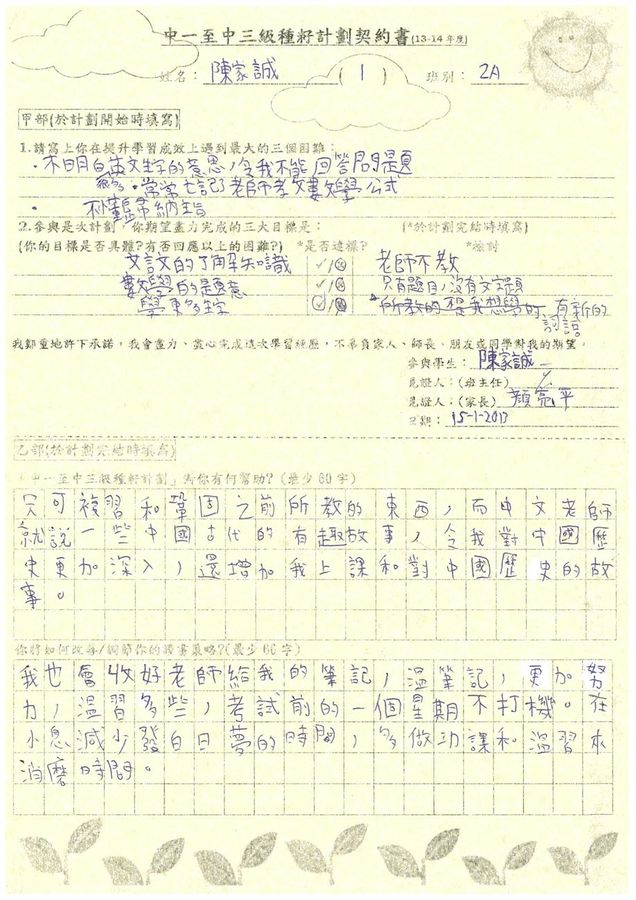 中一至中三級種籽計劃契約書(13-14年度)
姓名：陳家誠 ( 1 ) 班別：2A
甲部(於計劃開始時填寫)
1.請寫上你在提升學習成效上遇到最大的三個困難：
·不明白英文生字的意思，令我不能回答問題
·常常忘記了老師教數學公式
· 不懂歸納主旨
2.參與是次計劃，你期望盡力完成的三大目標是： (*於計劃完結時填寫)
(你的目標是否具體?有否回應以上的困難?) *是否達標? *檢討
文言文的了解知識 ✓/⊗ 老師不教
數學的題意 ✓/⊗ 只有題目，沒有文字題
學更多生字 ✓/⊗ 所教的是我想學的，有新的
詞語
我鄭重地許下承諾，我會盡力、盡心完成這次學習經歷，不辜負家人、師長、朋友或同學對我的期望。
參與學生：陳家誠
見證人：(班主任)
見證人：(家長) 顏亮平
日期：15-1-2013
乙部(於計劃完結時填寫)
「中一至中三級種籽計劃」對你有何幫助?(最少60字)
只可複習和鞏固之前所教的東西，而中文老師
就說一些中國古代的有趣故事，令我對中國歷
史更加深入，還增加我上課和對中國歷史的故
事。
你將如何改善/調節你的讀書策略?(最少60字)
我也會收好老師給我的筆記，溫筆記，更加努
力，溫習多些，考試前的一個星期不打機。在
小息減少發白日夢的時間，多做功課和溫習來
消磨時間。